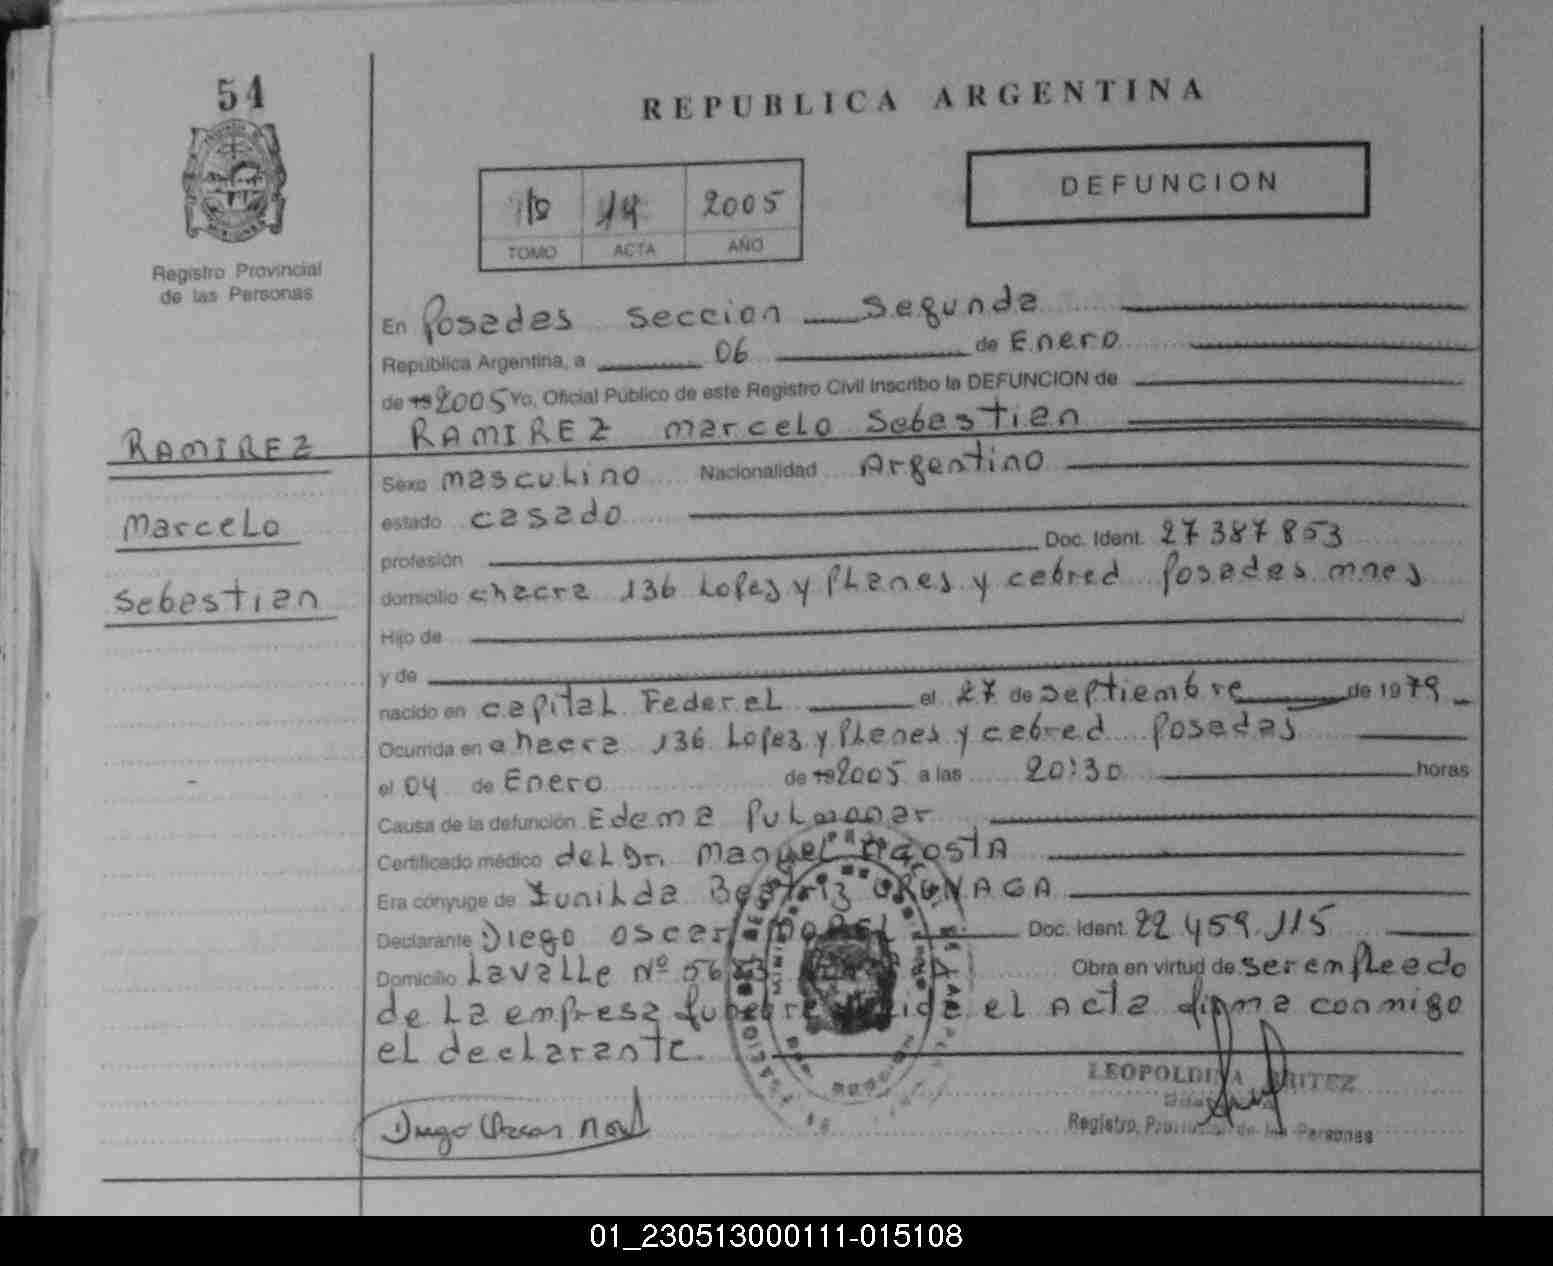 54
REPUBLICA ARGENTINA
DEFUNCION
14 2005
TOMO ACTA AÑO
Registro Provincial
de las Personas
En Posadas seccion Segunda
República Argentina, a 06 de Enero
de 19 2005 Yo, Oficial Público de este Registro Civil inscribo la DEFUNCION de
RAMIREZ
RAMIREZ marcelo Sebastian
Sexo masculino Nacionalidad Argentino
marceLo
estado casado
profesión Doc. Ident. 27 387 853
Sebastian
domicilio chacra 136 Lopez y PLanes y cabred Posadas mnes
Hijo de
y de
nacido en capitaL FederaL el 27 de septiembre de 1979
Ocurrida en chacra 136 Lopez y PLanes y cabred Posadas
el 04 de Enero de 19 2005 a las 20:30 horas
Causa de la defunción Edema PuLmonar
Certificado médico deL Dr. ManueL AcostA
Era cónyuge de Beatriz
Declarante Diego oscar Doc. Ident. 22.459.115
Domicilio LavaLLe Nº Obra en virtud de ser empLeado
de La empresa el Acta firma conmigo
el declarante.
LEOPOLDINA BRITEZ
Registro Provincial de las Personas
Diego Oscar
01_230513000111-015108